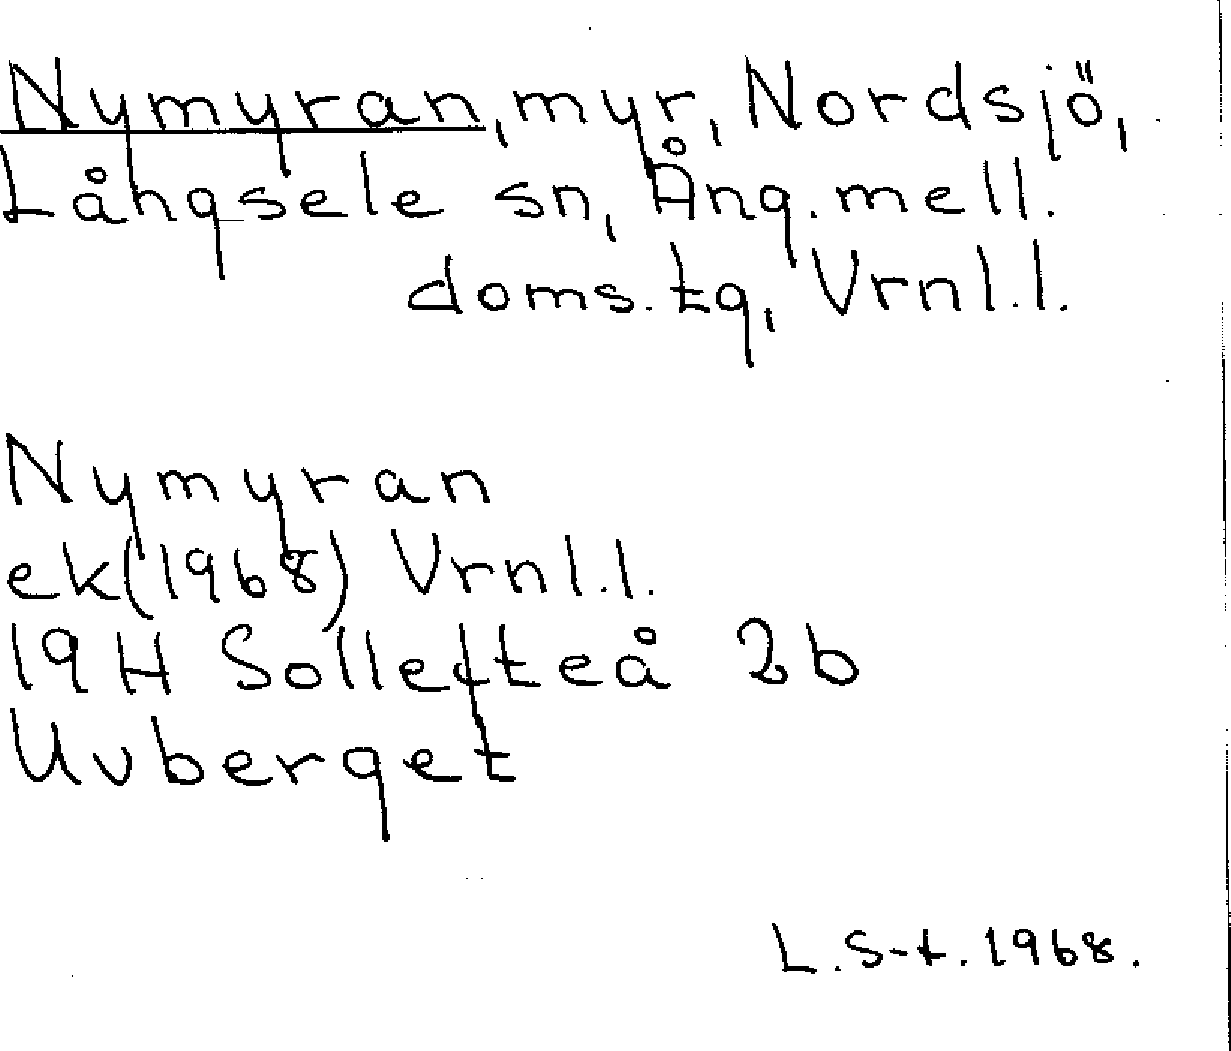 Nymyran, myr, Nordsjö,
Långsele sn, Ång. mell.
doms. tg, Vrnl.l.
Nymyran
ek(1968) Vrnl.l.
19H Sollefteå 2b
Uvberget
L. S-t. 1968.